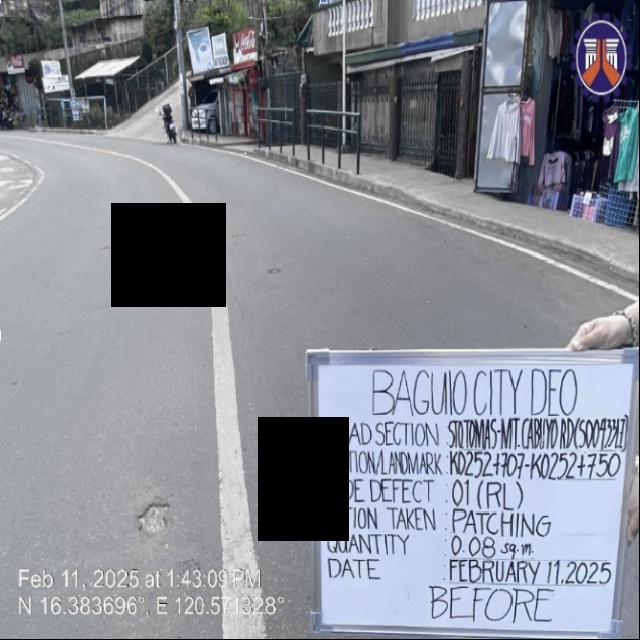 BAGUIO CITY DEO
AD SECTION : STO.TOMAS-MT.CABUYO RD(S00934LZ)
TION/LANDMARK : K0252+707-K0252+750
DE DEFECT : 01 (RL)
TION TAKEN : PATCHING
QUANTITY : 0.08 sq.m.
DATE : FEBRUARY 11,2025
BEFORE
Feb 11, 2025 at 1:43:09 PM
N 16.383696°, E 120.571328°